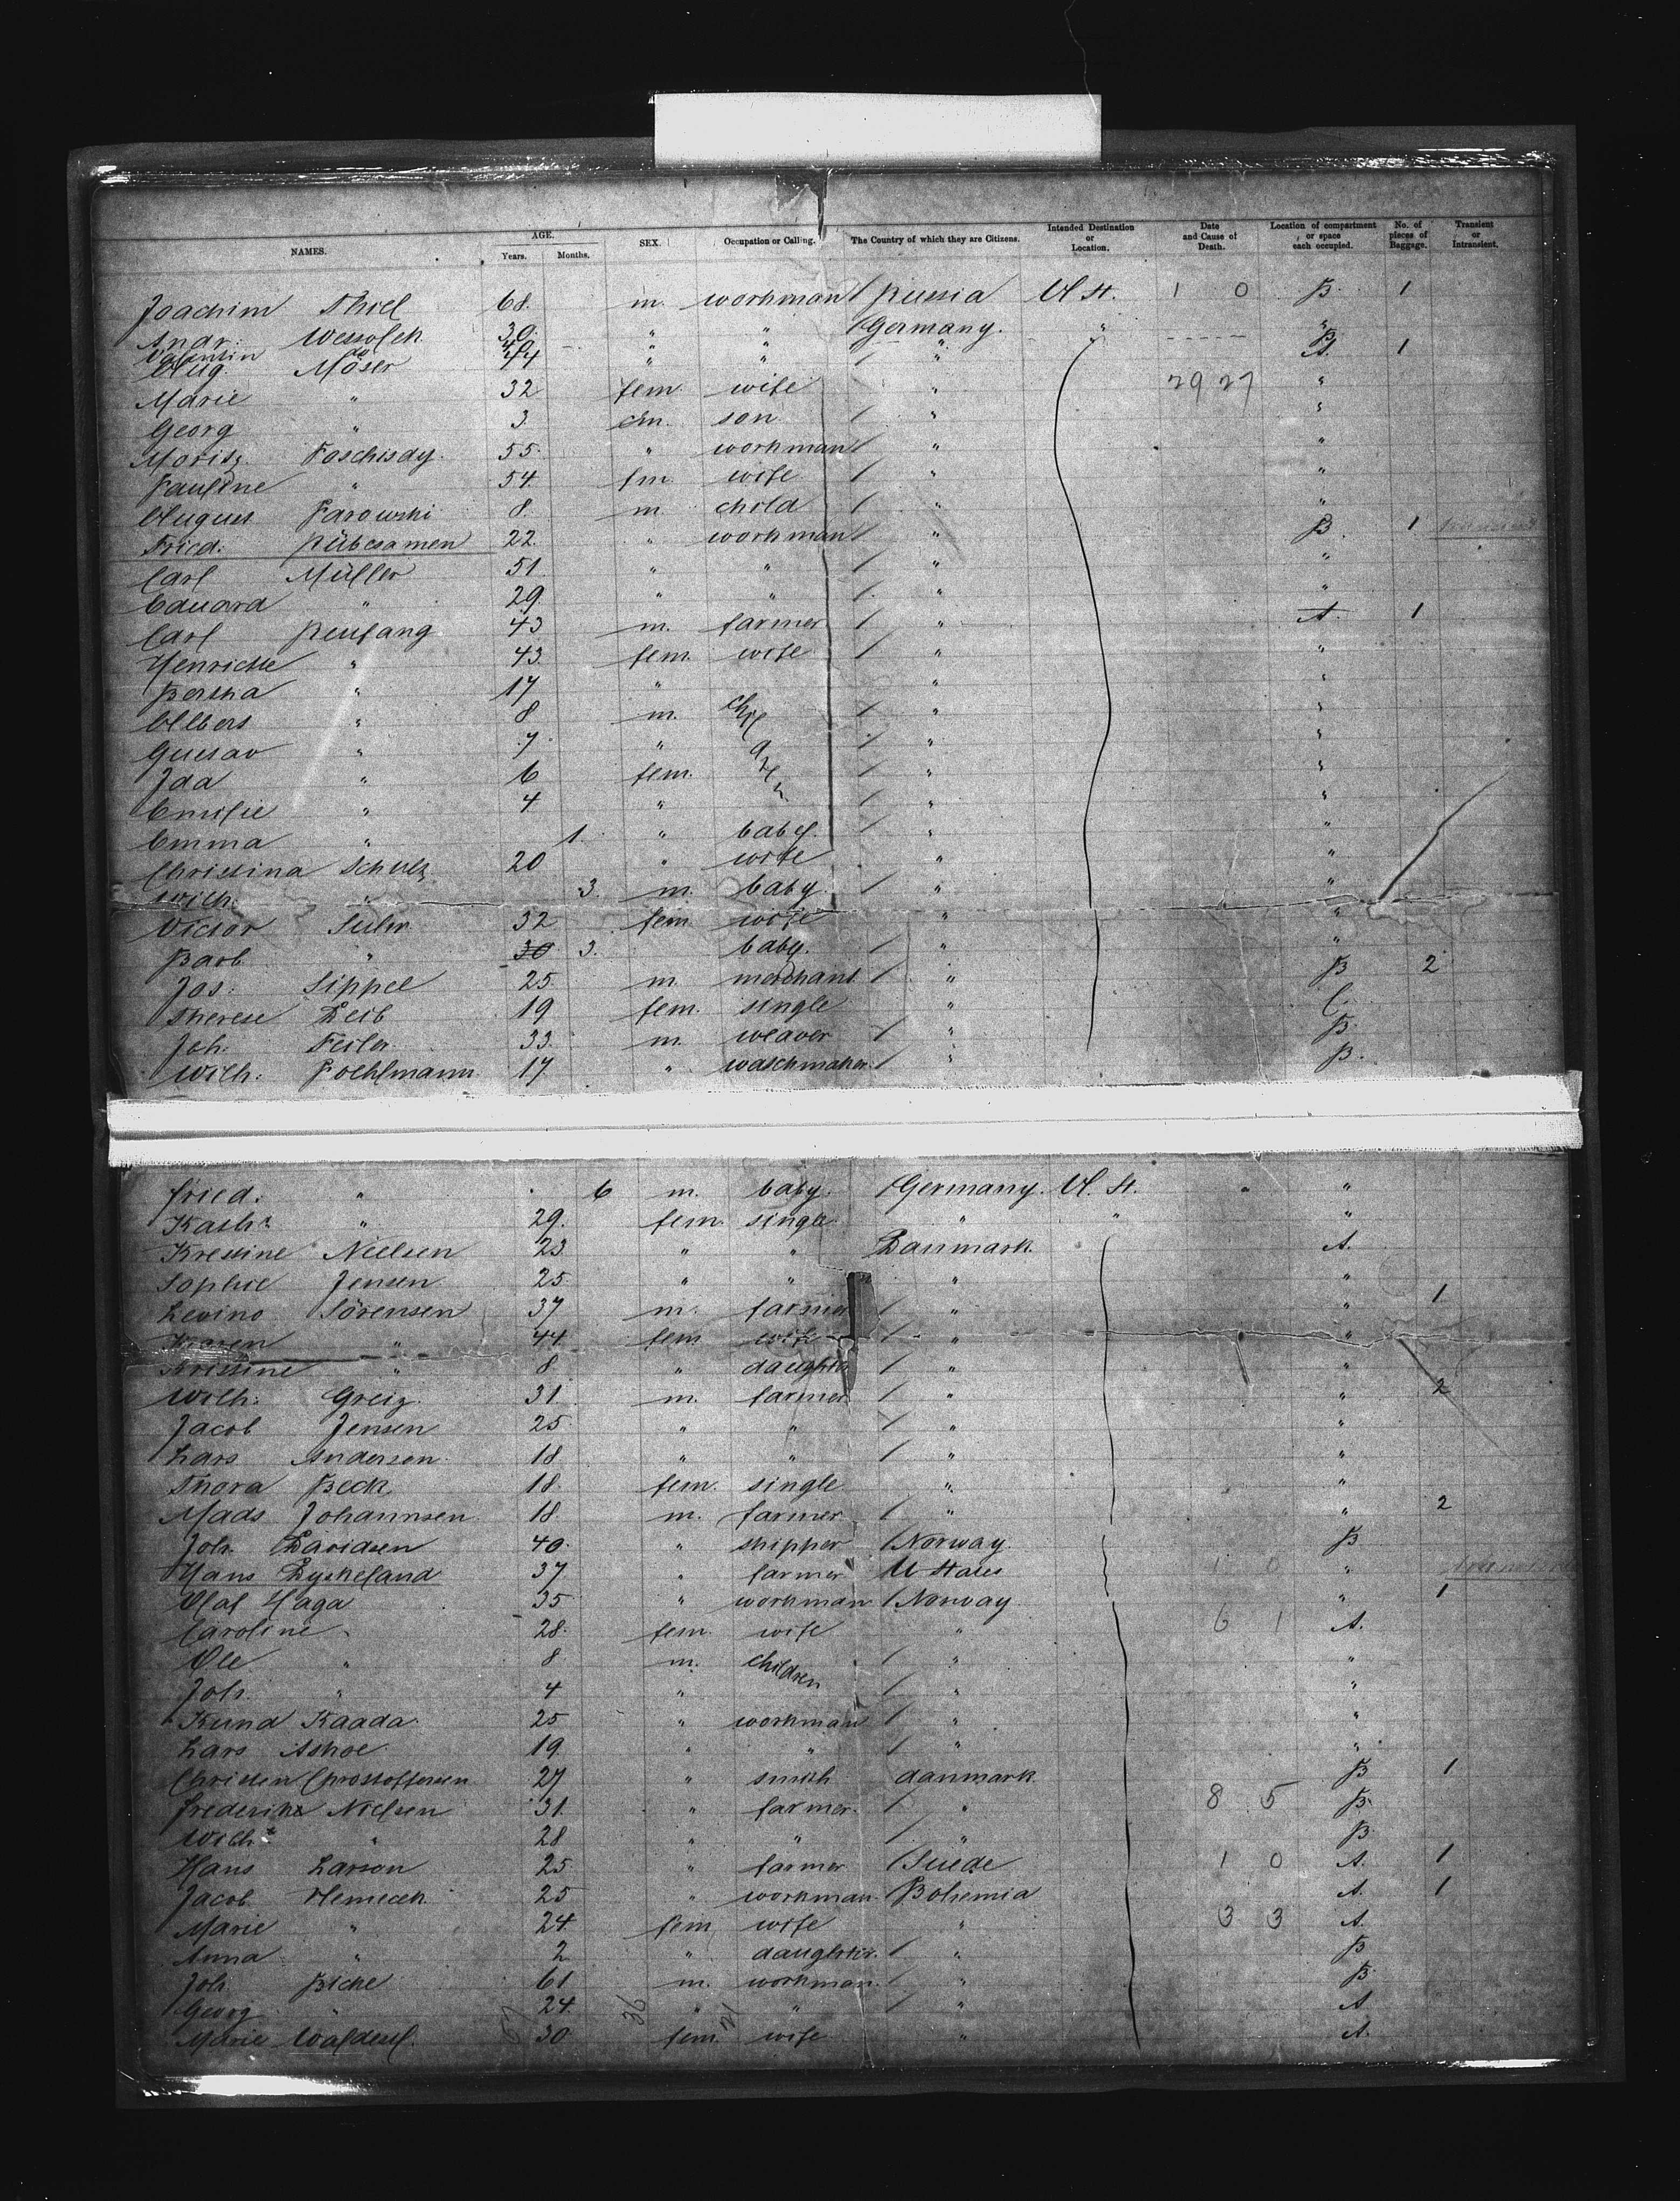 NAMES. AGE. Years. Months. SEX. Occupation or Calling. The Country of which they are Citizens. Intended Destination or Location. Date and Cause of Death. Location of compartment or space each occupied. No. of pieces of Baggage. Transient or Intransient.
Joachim Thiel 68. m. workman / Russia U St. 1 0 B. 1
Andr. 30. " " / Germany. " "
Valentin do 40 " " " B.
Aug. Möser 44 " " / " A. 1
Marie " 32 fem wife " 29 27 "
Georg " 3 m. son / " "
Moritz 55. " workman / " "
Pauline " 54. fm wife / " "
August Parowski 8. m child / " "
Fried. Rübesamen 22. " workman / " B. 1
Carl Müller 51 " " / " "
Eduard " 29. " " / " "
Carl Reufang 43 m. farmer / " A. 1
Henriette " 43. fem. wife / " "
Bertha " 17 " " "
Albert " 8 m. / " "
Gustav " 7. " / " "
Ida " 6 fem. / " "
Emilie " 4 " / " "
Emma " 1. " baby. / " "
Christina Schulz 20 " wife " "
Wilh. " 3. m. baby. / " "
Victor 32 fem wife " "
Barb. " 30 3. baby. / " "
Jos. Sippel 25 m. merchant / " B 2
Therese Leib 19 fem. single " C.
Joh. Feiler 33. m. weaver / " B.
Wilh. Poehlmann 17. " waschmaker / " B.
Fried. " 6 m. baby. / Germany. U. St. " "
Kath. " 29. fem. single " " "
Krestine Nielsen 23. " " Danmark. A.
Sophie Jensen 25 " " " "
Levino Sörensen 37 m. farmer / " " 1
Karen " 44. fem. wife / " "
Kristine " 8 " daughter / " "
Wilh. Greiz. 31. m. farmer / " " 2
Jacob Jensen 25 " " / " "
Lars Andersen 18 " " / " "
Thora Beck 18. fem. single " "
Mads Johannsen 18. m. farmer / " " 2
Joh. Davidsen 40. " shipper / Norway. B
Hans Lyskeland 37. " farmer U States 1 0 "
Olaf Haga 35 " workman / Norway " 1
Caroline " 28. fem. wife " 6 1 A.
Ole " 8 m. children / " "
Joh. " 4 " / " "
Knud Kaada 25 " workman / " "
Lars Askoe 19. " " / " "
Christen Christoffersen 27 " smith danmark B 1
Frederik Nielsen 31. " farmer. / " 8 5 B.
Wilh. " 28 " " / " B.
Hans Larson 25 " farmer / Suede 1 0 A. 1
Jacob Nemecek 25 " workman. / Bohemia A. 1
Marie " 24. fem wife " 3 3 A.
Anna " 2 " daughter. / " B
Joh. Bickel 61 m. workman. / " B.
Georg " 24. " " / " A
Marie 30 fem. wife " A.